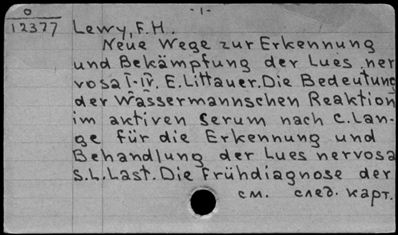 -1-
0
12377
Lewy, F.H.
Neue Wege zur Erkennung
und Bekämpfung der Lues ner
vosa I-IV. E. Littauer. Die Bedeutung
der Wassermannschen Reaktion
im aktiven Serum nach C. Lan-
ge für die Erkennung und
Behandlung der Lues nervosa
S.L. Last. Die Frühdiagnose der
см. след. карт.